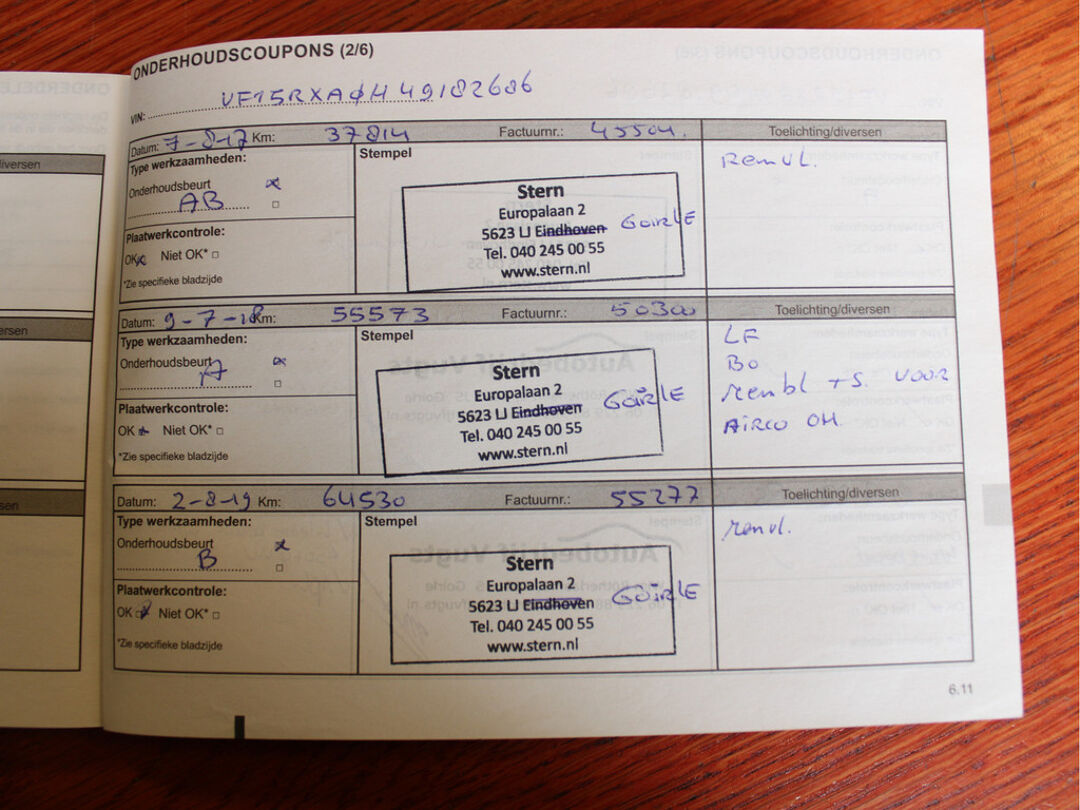 ONDERHOUDSCOUPONS (2/6)
VIN: VF15RXA0H49182686
Datum: 7-8-17 Km: 37814 Factuurnr.: 45504. Toelichting/diversen
Type werkzaamheden:
Stempel
Remvl.
Onderhoudsbeurt x
AB
Stern
Europalaan 2
5623 LJ Eindhoven GOIRLE
Tel. 040 245 00 55
www.stern.nl
Plaatwerkcontrole:
OK x Niet OK*
*Zie specifieke bladzijde
Datum: 9-7-18 Km: 55573 Factuurnr.: 50300 Toelichting/diversen
Type werkzaamheden:
Stempel
LF
Bo
Rembl +S. VOOR
AIRCO OH.
Onderhoudsbeurt x
A
Stern
Europalaan 2
5623 LJ Eindhoven GOIRLE
Tel. 040 245 00 55
www.stern.nl
Plaatwerkcontrole:
OK x Niet OK*
*Zie specifieke bladzijde
Datum: 2-8-19 Km: 64530 Factuurnr.: 55277 Toelichting/diversen
Type werkzaamheden:
Stempel
remvl.
Onderhoudsbeurt x
B
Stern
Europalaan 2
5623 LJ Eindhoven GOIRLE
Tel. 040 245 00 55
www.stern.nl
Plaatwerkcontrole:
OK x Niet OK*
*Zie specifieke bladzijde
6.11